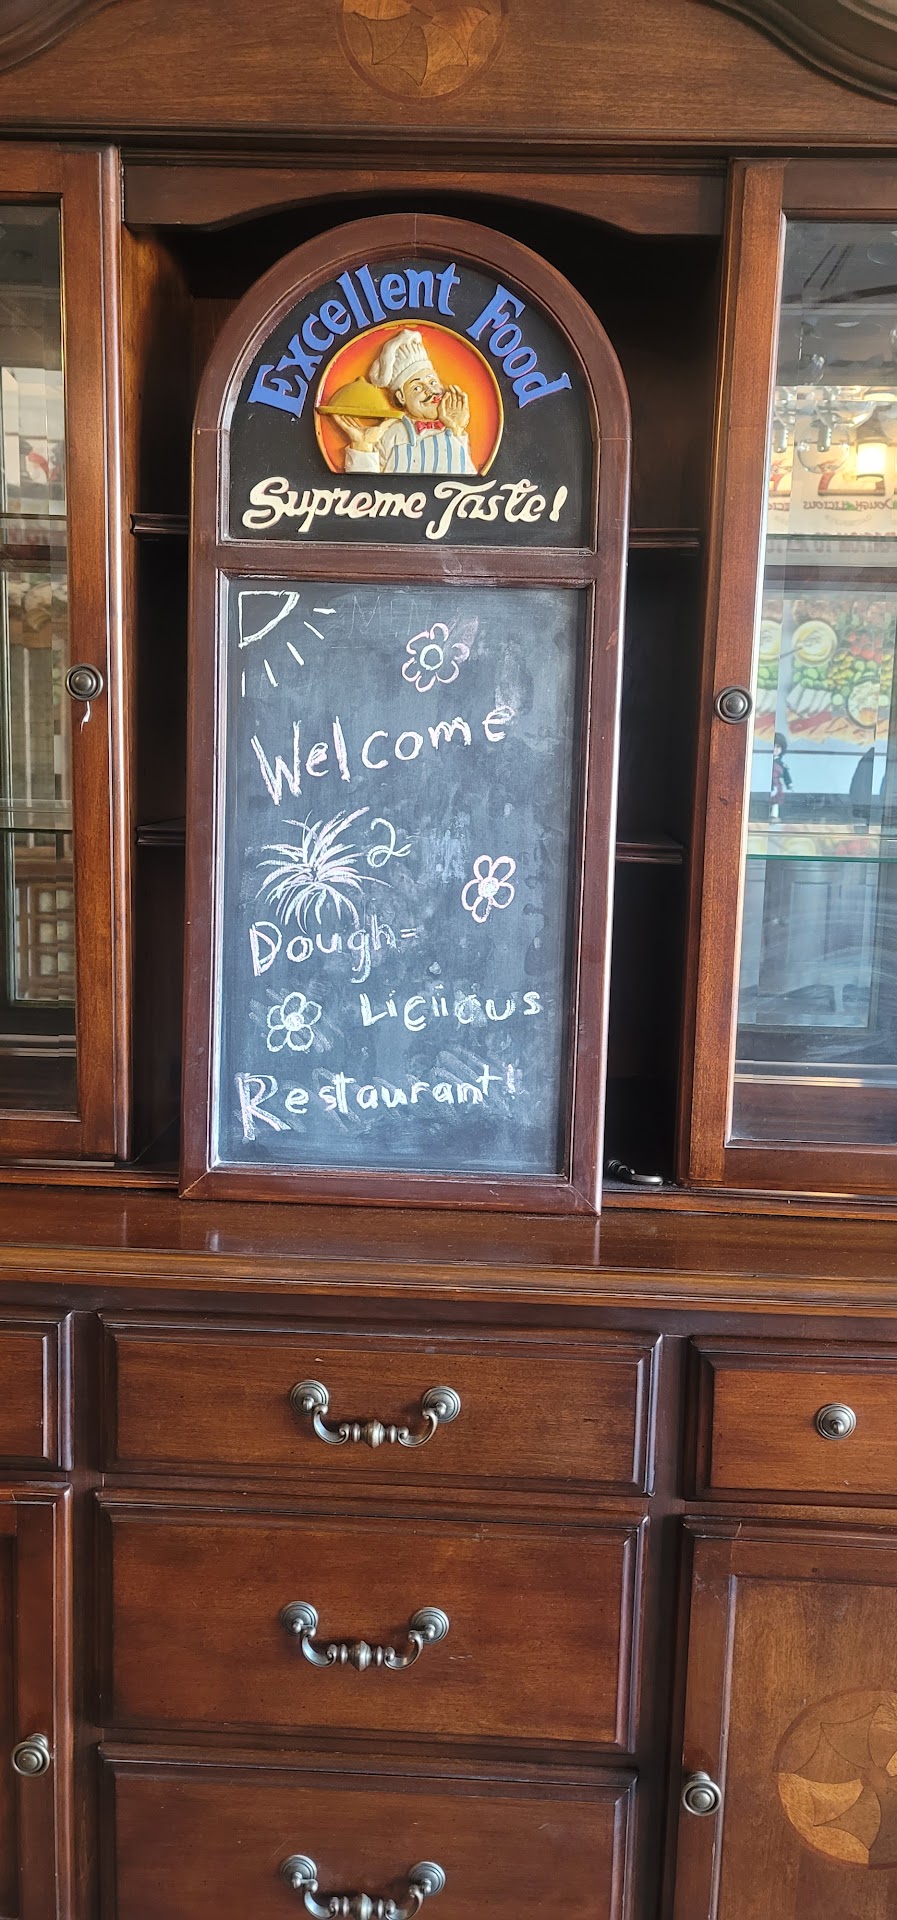 Excellent Food
Supreme Taste!
MEN
Welcome
2
Dough=
Liciious
Restaurant!